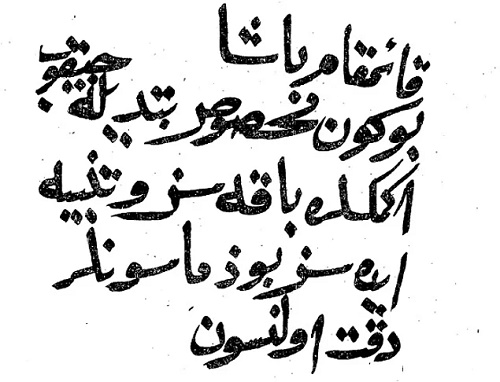 قائمقام پاشا
بوكون مخصوص تبديله چيقوب
اكمكلره باقه سز و تنبيه
ايده سز بوزماسونلر
دقت اولنسون